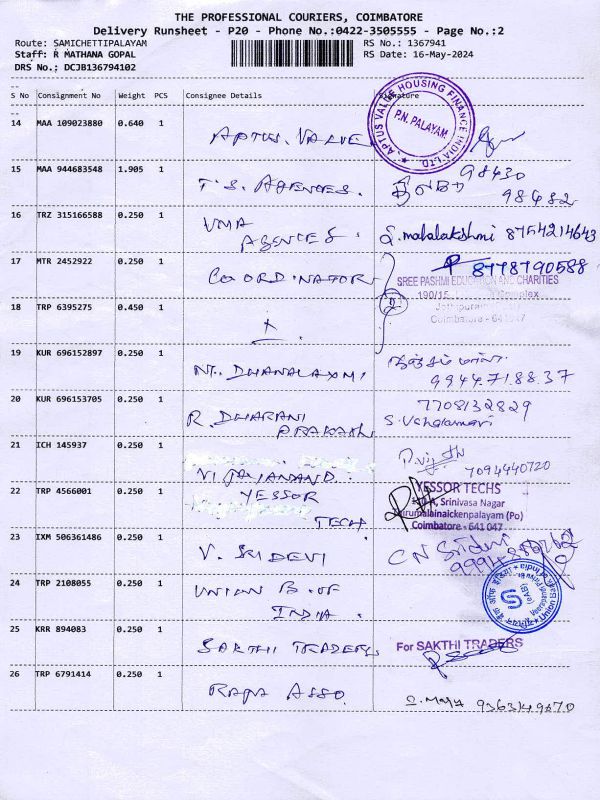 THE PROFESSIONAL COURIERS, COIMBATORE
Delivery Runsheet - P20 - Phone No.:0422-3505555 - Page No.:2
Route: SAMICHETTIPALAYAM
RS No.: 1367941
Staff: R MATHANA GOPAL
RS Date: 16-May-2024
DRS No.; DCJB136794102
S No Consignment No Weight PCS Consignee Details Signature
14 MAA 109023880 0.640 1 APTUS. VALUE
APTUS VALUE HOUSING FINANCE INDIA LTD.
P.N. PALAYAM.
15 MAA 944683548 1.905 1 T.S. AGENCIES. 98430
98482
16 TRZ 315166588 0.250 1 VMA
AGENCIES. S.mahalakshmi 8754214643
17 MTR 2452922 0.250 1 COORDINATOR 8778790588
SREE PASHMI EDUCATION AND CHARITIES
190/15
Complex
Jothipuram
Coimbatore - 641 047
18 TRP 6395275 0.450 1 2
19 KUR 696152897 0.250 1 NT. DHANALAXMI
9944718837
20 KUR 696153705 0.250 1 R. DHARANI
PRAKASH 7708132829
21 ICH 145937 0.250 1 VIJAYANAND. 7094440720
22 TRP 4566001 0.250 1 YESSOR
TECH.
YESSOR TECHS
Srinivasa Nagar
Thirumalainaickenpalayam (Po)
Coimbatore - 641 047
23 IXM 506361486 0.250 1 V. SRIDEVI CN Sridevi
24 TRP 2108055 0.250 1 UNION B. OF
INDIA.
25 KRR 894083 0.250 1 SAKTHI TRADERS For SAKTHI TRADERS
26 TRP 6791414 0.250 1 RAJA ASSO.